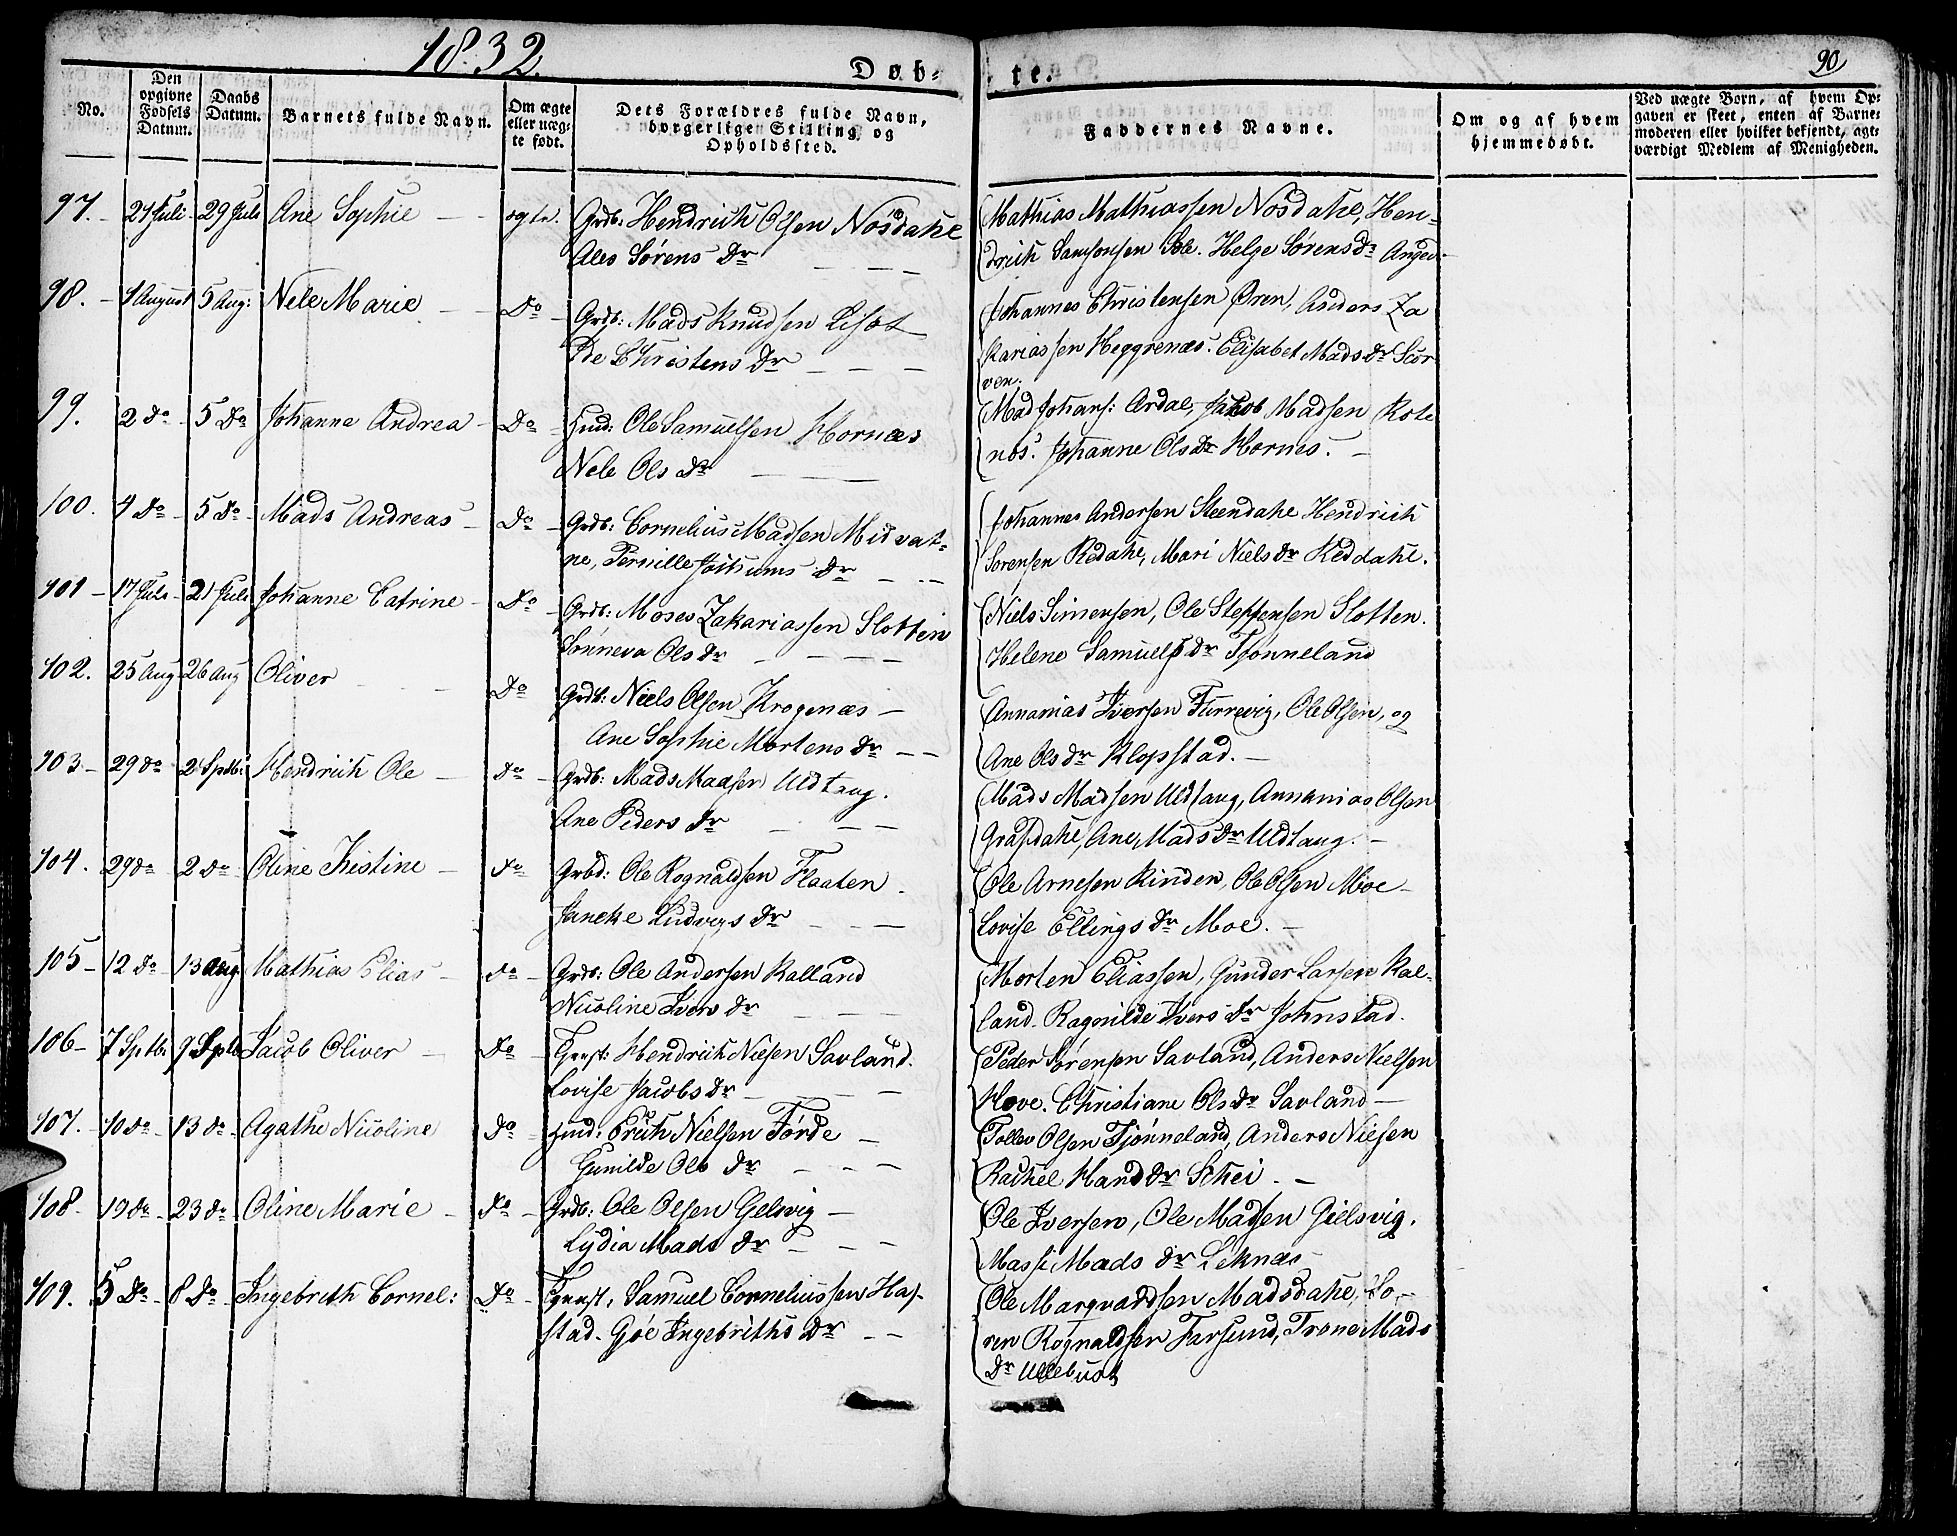 1832.
Døb-te.
90
No.
Den opgivne Fødsels Datum.
Daabs Datum.
Barnets fulde Navn.
Om ægte eller uægte født.
Dets Forældres fulde Navn, borgerligen Stilling og Opholdssted.
Faddernes Navne.
Om og af hvem hjemmedøbt.
Ved uægte Børn, af hvem Opgaven er skeet, enten af Barnemoderen eller hvilket bekjendt, agtværdigt Medlem af Menigheden.
97. 29 Juli Ane Sophie ogte. Grdb: Hendrich Olsen Nosdahl
Ales Sørens Dr
Mathias Mathiassen Nosdahl, Hen-
drich Samsonsen Sole. Helge Sørens Dr
98. 1 August 5 Aug: Nele Marie Do Grdb: Mads Knudsen
Christens Dr
Johannes Christensen Øren, Anders Za
kariassen Heggrenæs. Elisabet Mads Dr Scor
ven.
99. 2 Do 5 Do Johanne Andrea Do Huusm: Ole Samuelsen Hornæs
Nele Ols Dr
Mad Johans: Ardal, Jakob Madsen Role
nos. Johanne Ols Dr Hornes.
100. 4 Do 5 Do Mads Andreas Do Grdb: Cornelius Madsen Midvat-
ne, Pernille Jochums Dr
Johannes Andersen Steendahl Hendrich
Sorensen Redahl, Mari Niels Dr Reddahl.
101 17 Juli 21 Juli Johanne Catrine Do Grdb: Moses Zakariassen Slotten
Sønneva Ols Dr
Niels Simensen, Ole Steffensen Slotten.
Helene Samuels Dr Tjønneland
102. 25 Aug 26 Aug Oliver Do Grdb: Niels Olsen Krogenæs
Ane Sophie Mortens Dr
Annanias Iversen Furrevig, Ole Olsen, og
Ane Ols Dr Klopstad.
103 29 Do 2 Sptbr: Hendrich Ole Do Grdb: Mads Madsen Uldtang.
Ane Peders Dr
Mads Madsen Uldtang, Annanias Olsen
Grafdahl, Ane Mads Dr Uldtang.
104. 29 Do 2 Do Oline Kistine Do Grbd: Ole Rognaldsen Flaaten
Jancke Ludvigs Dr
Ole Arnesen Rinden, Ole Olsen Moe
Lovise Ellings Dr Moe.
105 12 Do 13 Aug Mathias Elias Do Grdb: Ole Andersen Kalland
Nicoline Ivers Dr
Morten Eliassen, Gunder Larsen Kal-
land. Ragnilde Ivers Dr Johnstad.
106 7 Sptb: 9 Sptb Jacob Oliver Do Hendrich Nielsen Savland.
Lovise Jacobs Dr
Peder Sørensen Savland, Anders Nielsen
Hove. Christiane Ols Dr Savland
107. 10 Do 13 Do Agathe Nicoline Do Huusm: Erich Nielsen Førde
Gunilde Ols Dr
Tollev Olsen Tjønneland, Anders Nielsen
Rachel Hans Dr Schei
108. 19 Do 23 Do Oline Marie Do Grdb: Ole Olsen Gelsvig
Lydia Mads Dr
Ole Iversen, Ole Madsen Gielsvig.
Massi Mads Dr Leknæs
109. 5 Do 8 Do Ingebrith Cornel: Do Samuel Corneliussen Haf-
stad. Gjøe Ingebriths Dr
Ole Marqvardsen Madsdahl, So-
ren Rognaldsen Farsund, Trone Mads
Dr Ullebust